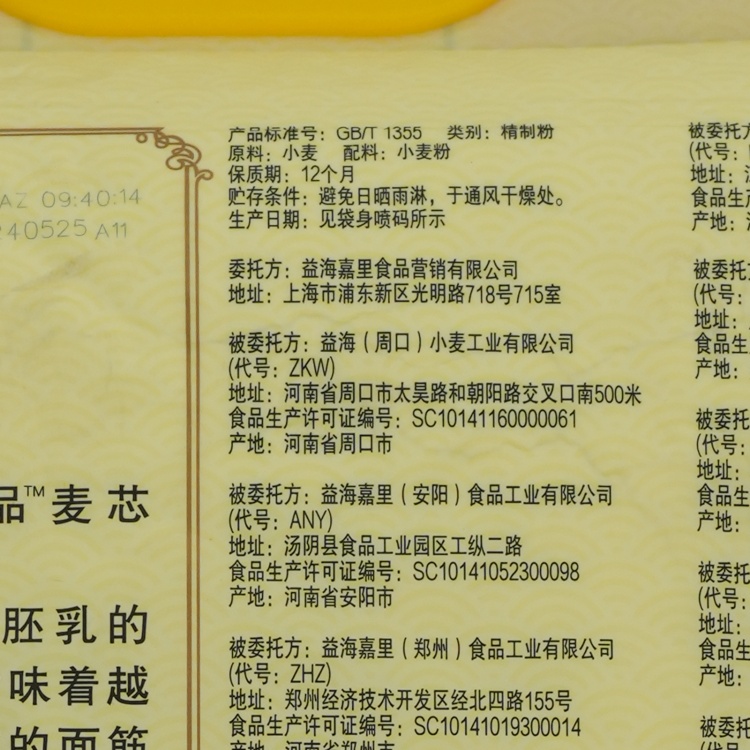 AZ 09:40:14
240525 A11
品™麦芯
胚乳的
味着越
的面筋
产品标准号：GB/T 1355 类别：精制粉
原料：小麦 配料：小麦粉
保质期：12个月
贮存条件：避免日晒雨淋，于通风干燥处。
生产日期：见袋身喷码所示
委托方：益海嘉里食品营销有限公司
地址：上海市浦东新区光明路718号715室
被委托方：益海（周口）小麦工业有限公司
(代号：ZKW)
地址：河南省周口市太昊路和朝阳路交叉口南500米
食品生产许可证编号：SC10141160000061
产地：河南省周口市
被委托方：益海嘉里（安阳）食品工业有限公司
(代号：ANY)
地址：汤阴县食品工业园区工纵二路
食品生产许可证编号：SC10141052300098
产地：河南省安阳市
被委托方：益海嘉里（郑州）食品工业有限公司
(代号：ZHZ)
地址：郑州经济技术开发区经北四路155号
食品生产许可证编号：SC10141019300014
产地：河南省郑州市
被委托方
(代号：
地址：
食品生产
产地：
被委托方
(代号：
地址：
食品生
产地：
被委托
(代号：
地址：
食品生
产地：
被委托
(代号：
地址：
食品生
产地：
被委托
(代号